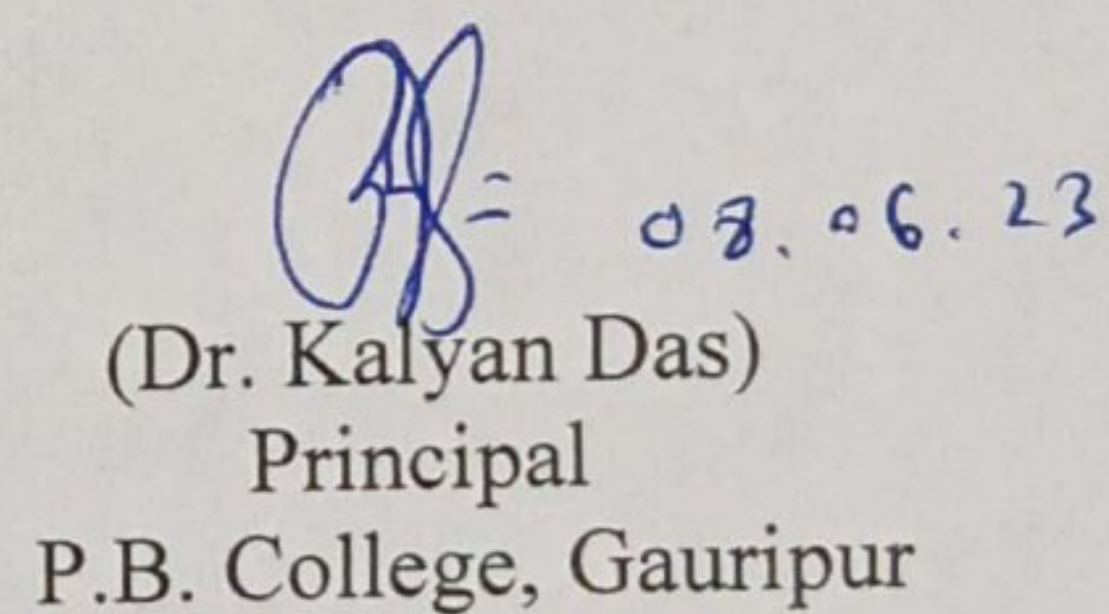 08.06.23
(Dr. Kalyan Das)
Principal
P.B. College, Gauripur